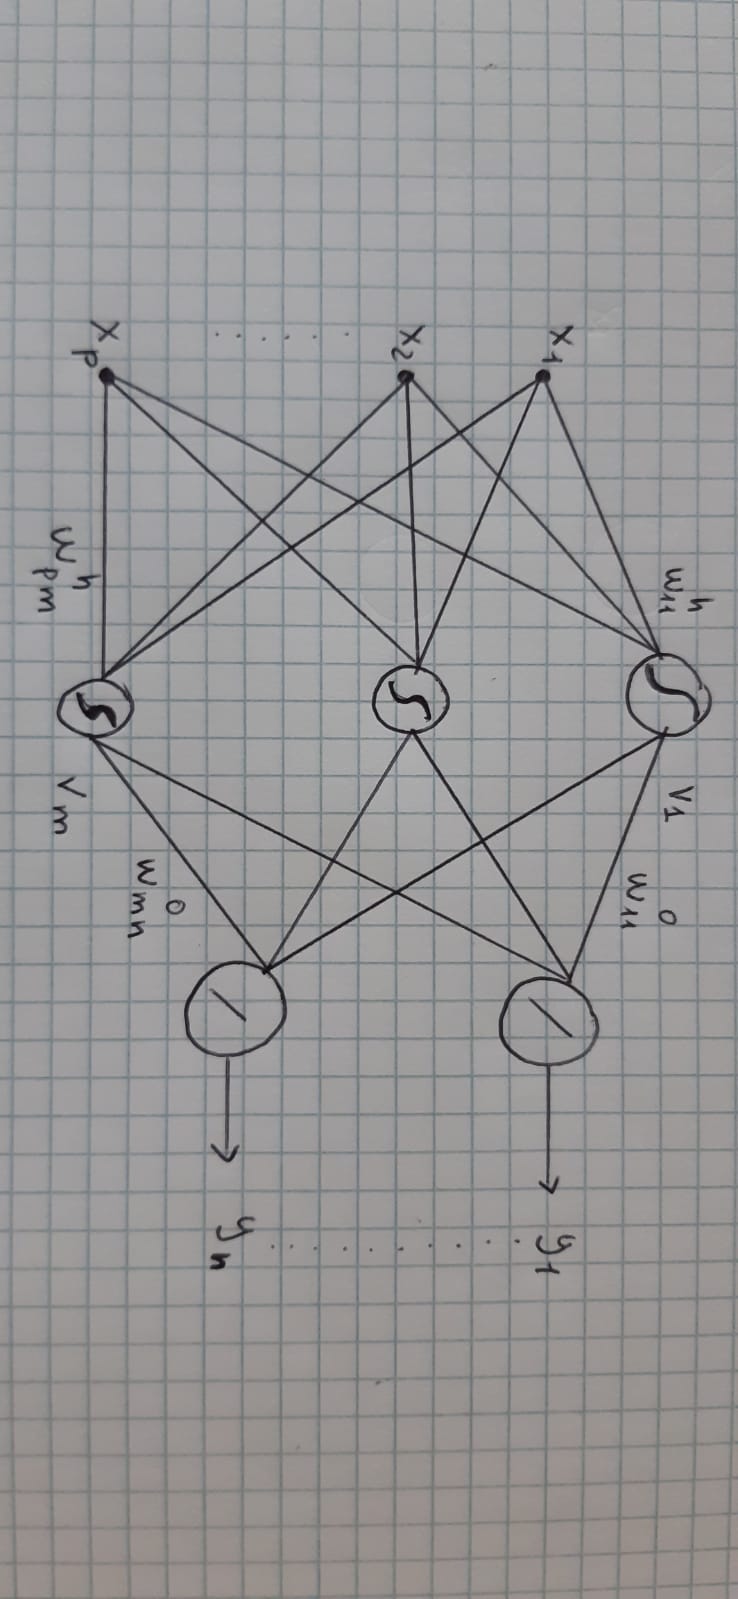 w₁₁ʰ
v₁
w₁₁ᵒ
x₁
y₁
x₂
yₙ
wₘₙᵒ
xₚ
wₚₘʰ
vₘ